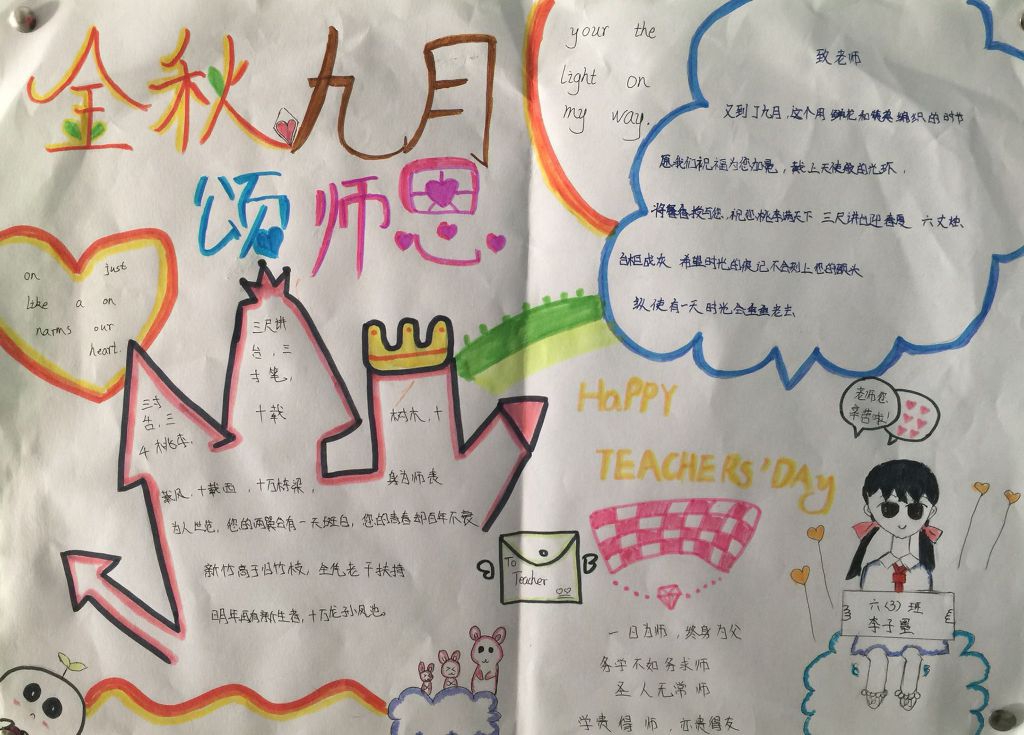 金秋九月
颂师恩
your the
light on
my way.
致老师
又到了九月,这个用鲜花和精英编织的时节
愿我们祝福为您加冕,戴上天使般的光环,
授与您,祝您桃李满天下 三尺讲台迎春夏 六丈
成灰 希望时光的痕记不会刻上您的额头
纵使有一天时光会老去
on just
like a on
narms our
heart.
三尺讲
台,三
寸笔,
十载
三寸
台,三
4 桃李.
树木,十
身为师表
风,十载西,十万栋梁,
为人生范,您的两鬓会有一天斑白,您的青春却百年不衰
新竹高于旧竹枝,全凭老干扶持
明年再有新生者,十万龙孙凤池。
HAPPY
TEACHERS'DAY
老师您
辛苦啦!
To
Teacher
六(3)班
李子墨
一日为师,终身为父
务学不如务求师
圣人无常师
学贵得师,亦贵得友